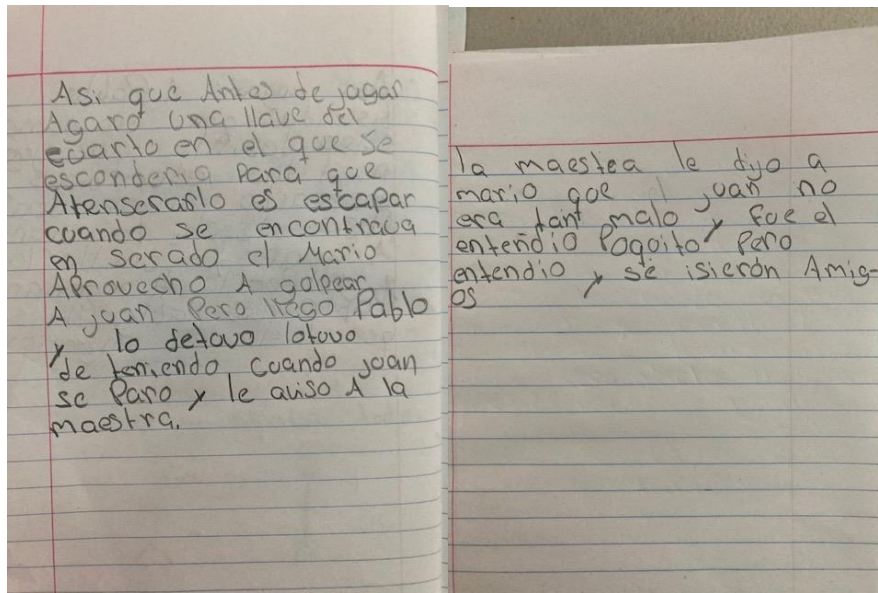 Asi que Antes de jugar
Agaro una llave del
cuarto en el que se
esconderia Para que
Atenserarlo es escapar
cuando se encontrava
en serado el Mario
Aprovecho A golpear
A juan Pero llego Pablo
y lo detuvo lotuvo
de teniendo cuando juan
se Paro y le aviso A la
maestra.
la maestea le dijo a
mario que juan no
era tant malo y fue el
entendio Poquito Pero
entendio y se isieron Amig-
os